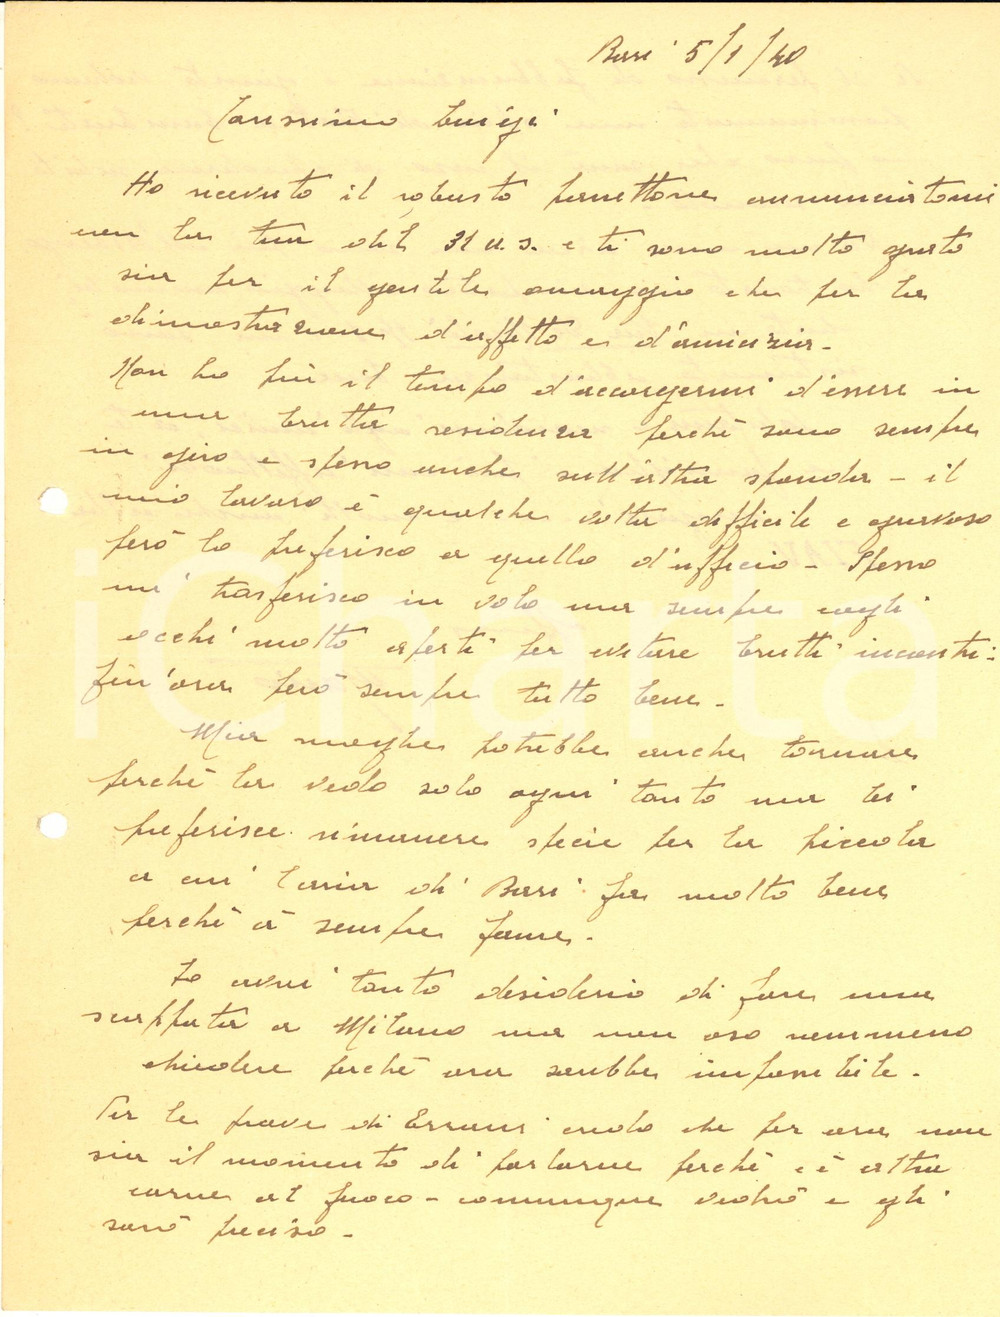 Bari 5/1/40
Carissimo Luigi
Ho ricevuto il robusto panettone annunciatomi
con la tua del 31 u.s. e ti sono molto grato
sia per il gentile omaggio che per la
dimostrazione d'affetto e d'amicizia -
Non ho più il tempo d'accorgermi d'essere in
una brutta residenza perchè sono sempre
in giro e spesso anche sull'altra sponda - il
mio lavoro è qualche volta difficile e gravoso
però lo preferisco a quello d'ufficio - Spesso
mi trasferisco in volo ma sempre cogli
occhi molto aperti per evitare brutti incontri:
fin'ora però sempre tutto bene -
Mia moglie potrebbe anche tornare
perchè la vedo solo ogni tanto ma lei
preferisce rimanere specie per la piccola
a cui l'aria di Bari fa molto bene
perchè à sempre fame -
Io avrei tanto desiderio di fare una
scappata a Milano ma non oso nemmeno
chiedere perchè ora sarebbe impossibile -
Per le prove di Errani credo che per ora non
sia il momento di parlarne perchè c'è altra
carne al fuoco - comunque vedrò e gli
sarò preciso -
iCharta